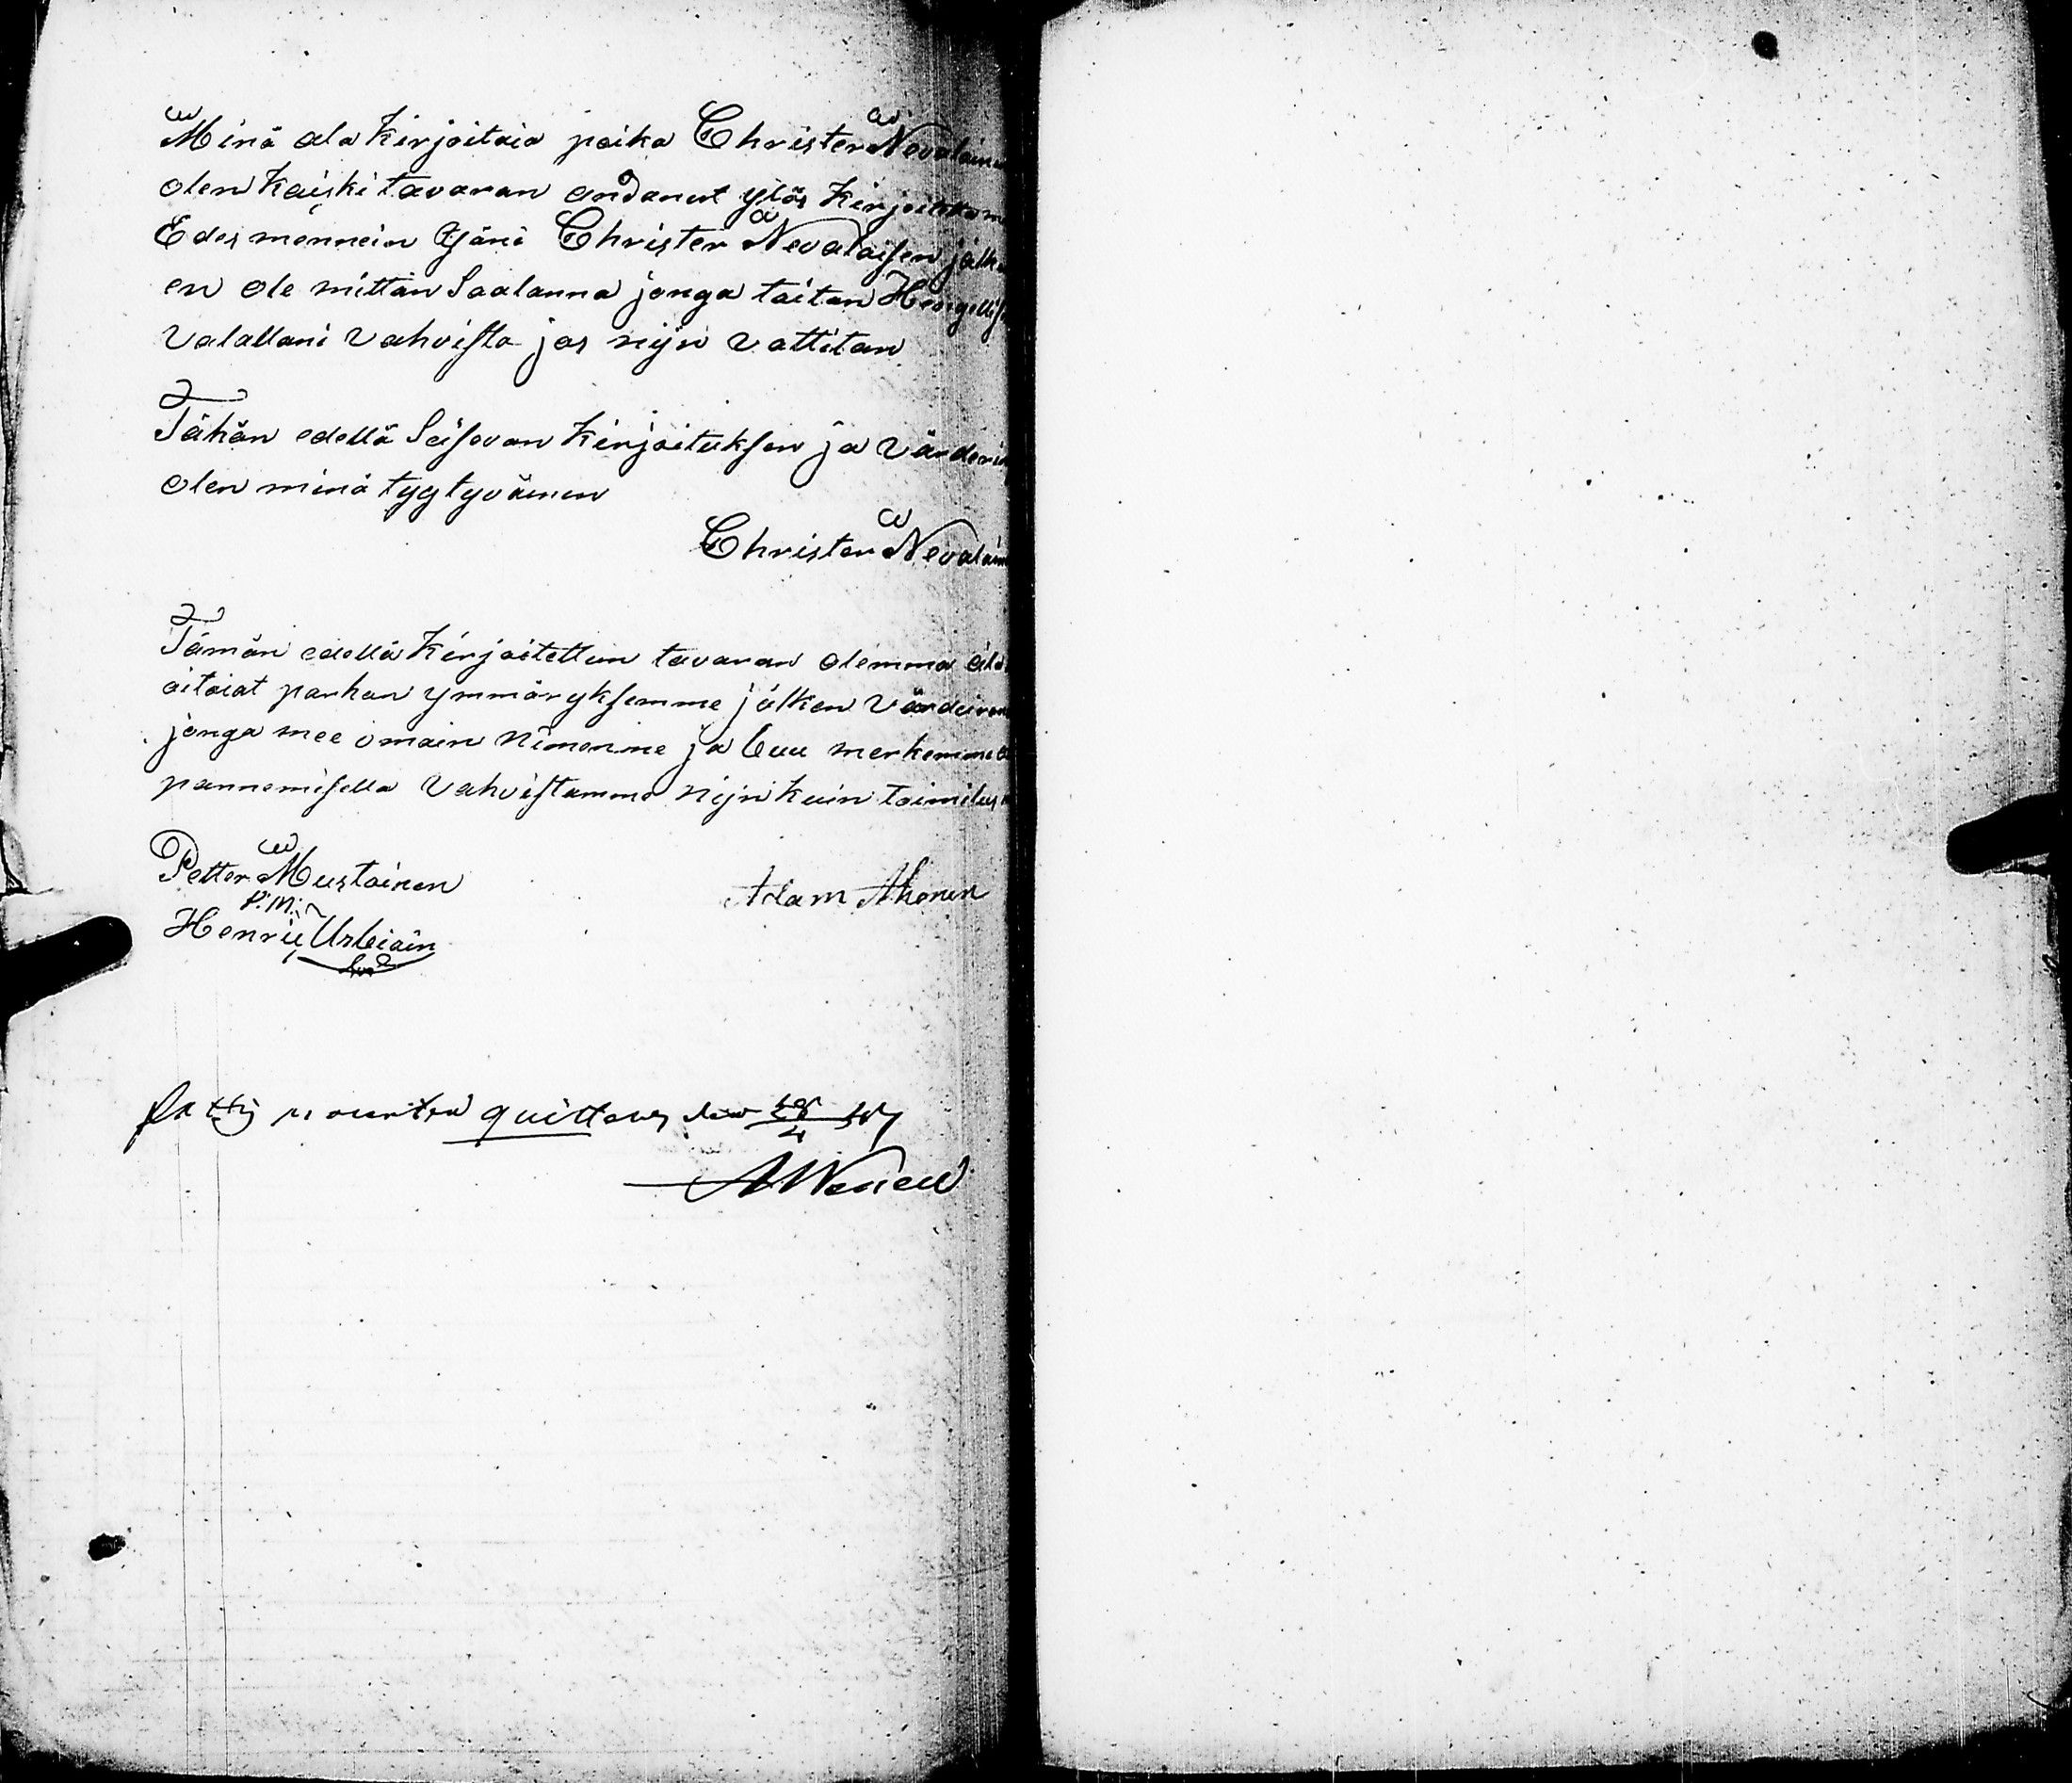 Minä ala Kirjoitaia poika Christer Nevalain
olen kaiski tavaran andanut ylös Kirjoitta
Edes mennein Isäni Christer Nevalaisen jälk
en ole mittän Saalanna jonga taitan Hengellis
Valallani Vahvista jos nijn Vattitan
Tähän edellä Seisovan Kirjoituksen ja Värderi
olen minä tygtyväinen
Christer Nevalain
Tämän edellä Kirjoitettun tavaran olemma
oitaiat parhan ymmäryksemme jälken
jonga mee omain Nimemme ja buu merkemme
pannemisella Vahvistamme Nijn kuin
Petter Mustoinen
P.M.
Adam Ahonen
Henric
quitteras den